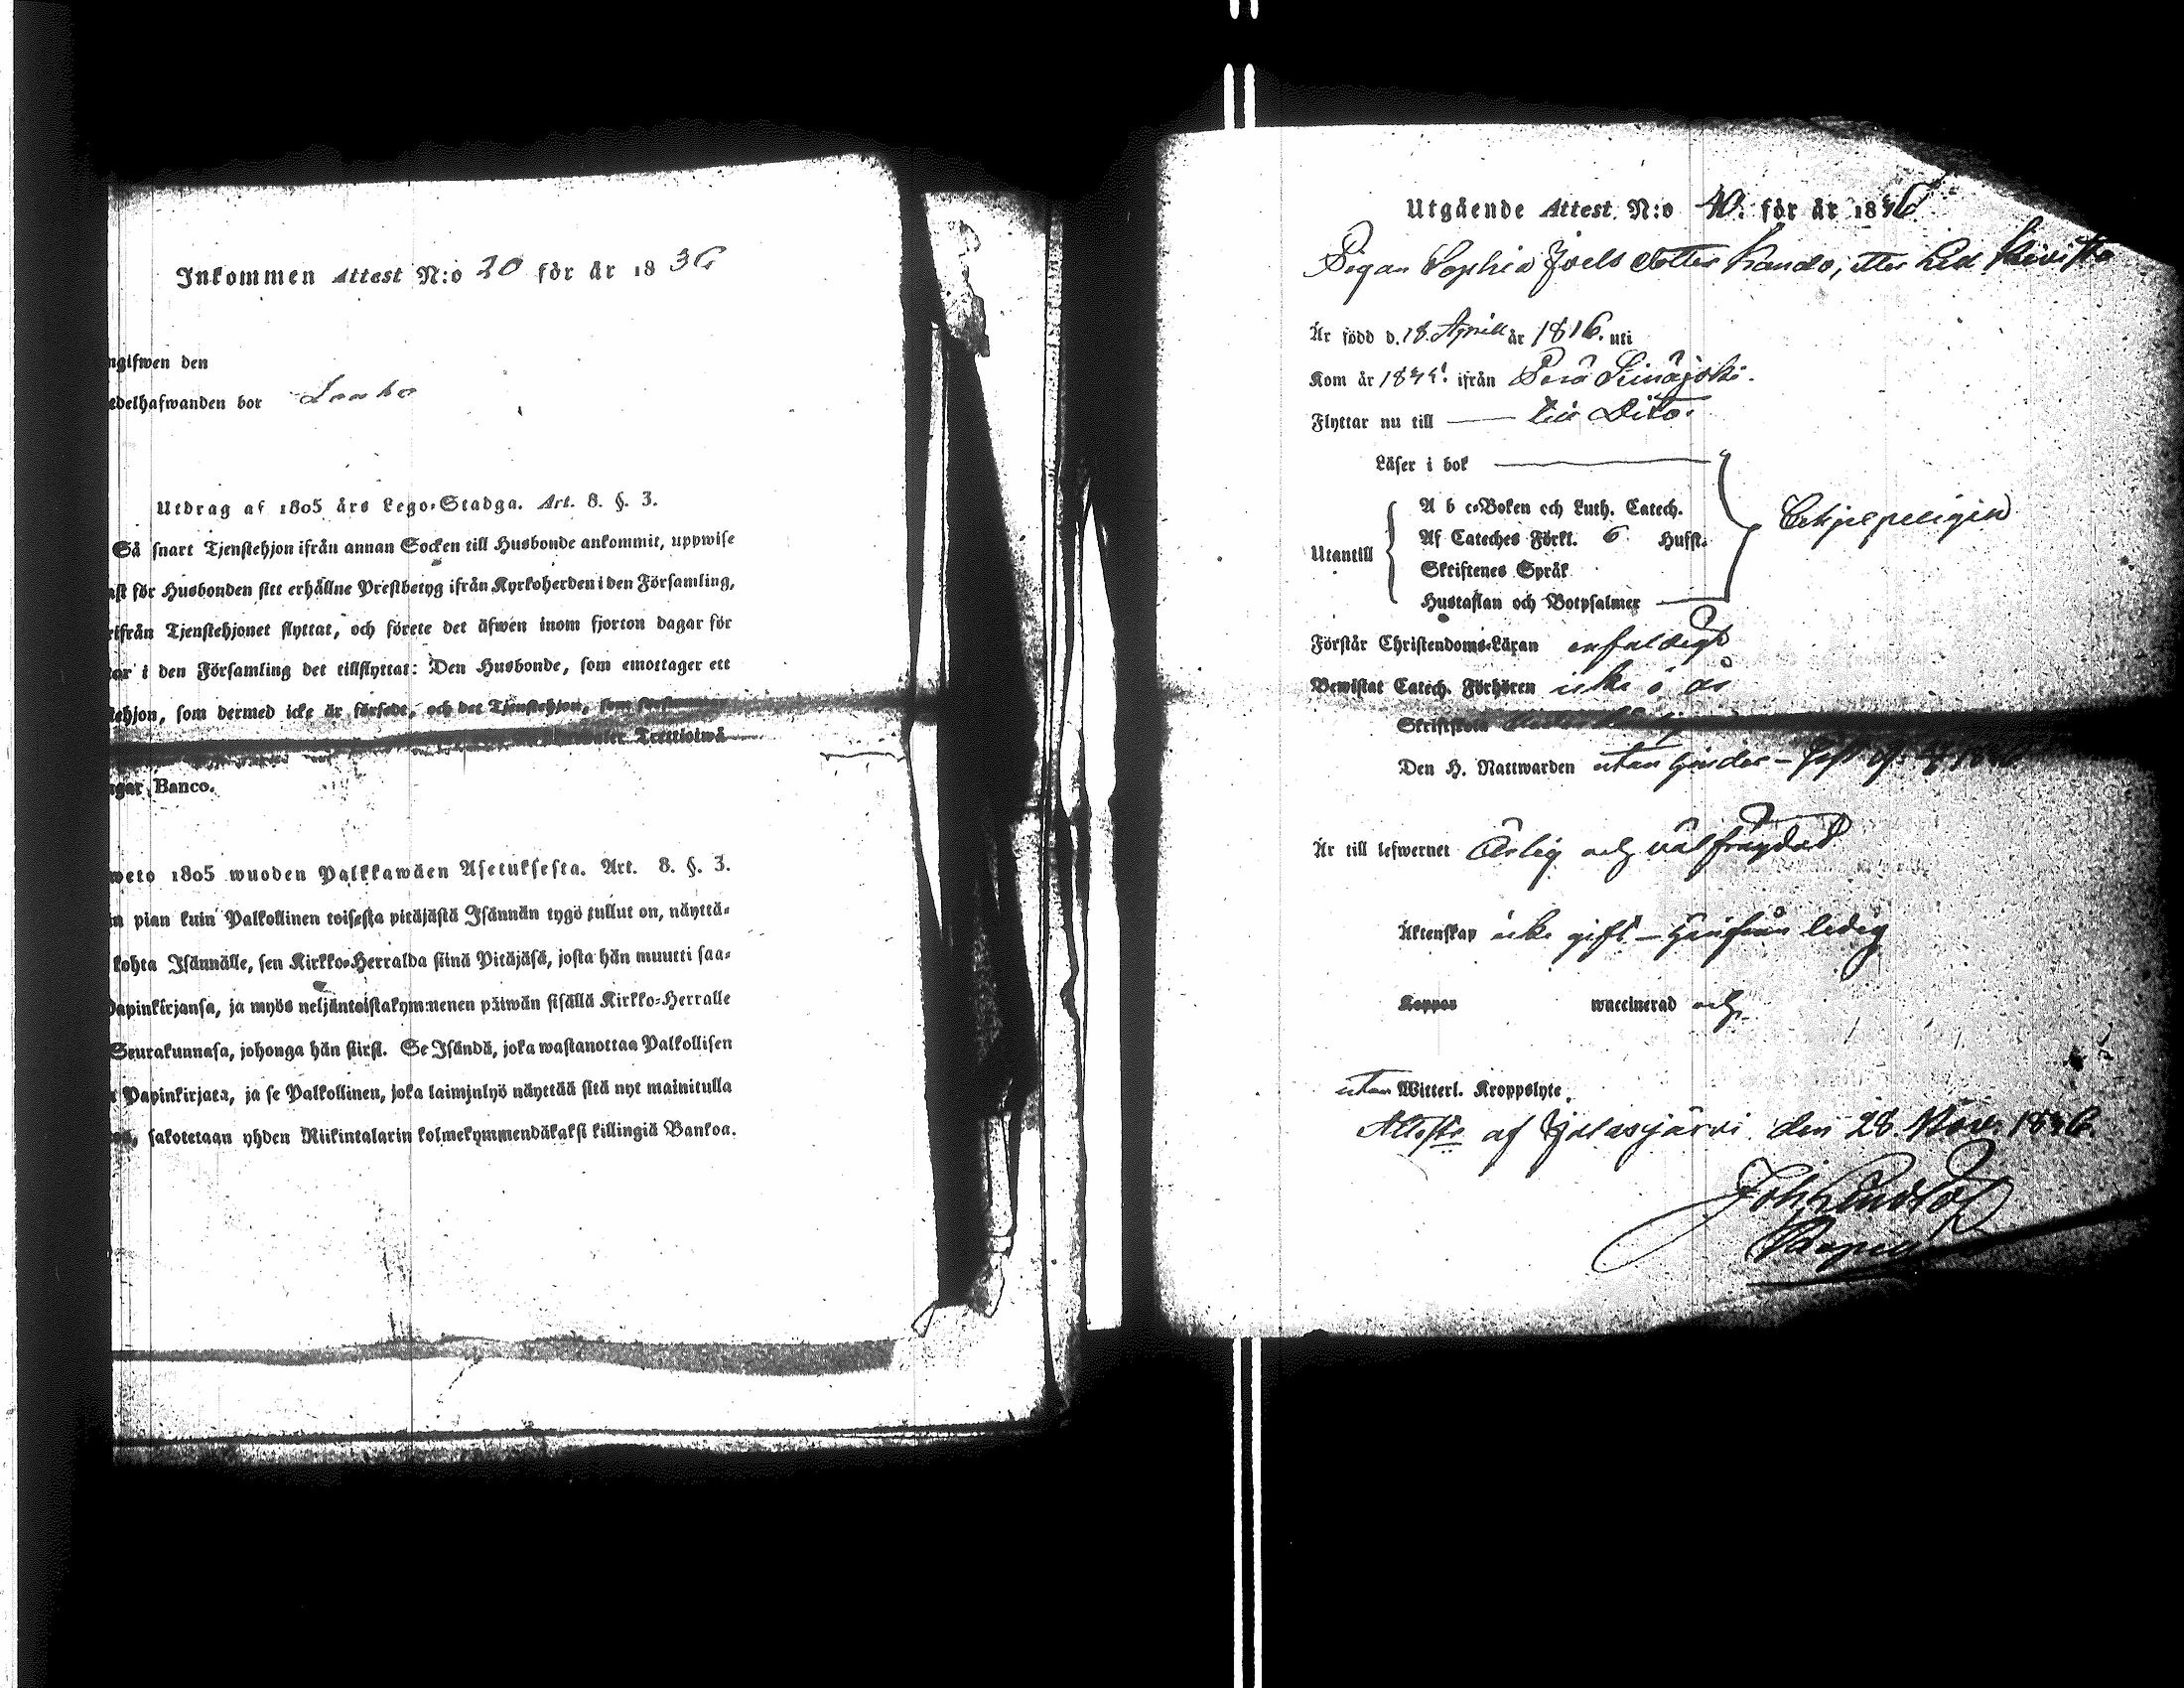 Inkommen Attest N:o 20 för år 1836
ngifwen den
edelhafwanden bor
Utdrag af 1805 års Lego-Stadga. Art. 8. §. 3.
Så snart Tjenstehjon ifrån annan Socken till Husbonde ankommit, uppwise
ast för Husbonden sitt erhållne Prestbetyg ifrån Kyrkoherden i den Församling,
rifrån Tjenstehjonet flyttat, och förete det äfwen inom fjorton dagar för
i den Församling det tillflyttat: Den Husbonde, som emottager ett
tehjon, som dermed icke är försedt, och det Tjenstehjon, som
Trettiotwå
ngar Banco.
weto 1805 wuoden Palkkawäen Asetuksesta. Art. 8. §. 3.
in pian kuin Palkollinen toisesta pitäjästä Isännän tygö tullut on, näyttä-
kohta Isännälle, sen Kirkko-Herralda siinä Pitäjäsä, josta hän muutti saa-
Papinkirjansa, ja myös neljäntoistakymmenen päiwän sisällä Kirkko-Herralle
Seurakunnasa, johonga hän siirsi. Se Isändä, joka wastanottaa Palkollisen
Papinkirjata, ja se Palkollinen, joka laiminlyö näyttää sitä nyt mainitulla
sakotetaan yhden Riikintalarin kolmekymmendäkaksi killingiä Bankoa.
Utgående Attest N:o 40. för år 1846
Pigan Sophia Joels dotter
Är född d. 18. April år 1816. uti
Kom år ifrån Perä Seinäjoki.
Flyttar nu till — till Dito.
Läser i bok
Utantill
A b c-Boken och Luth. Catech.
Af Cateches Förkl. 6 Hufst.
Skriftenes Språk
Hustaflan och Botpsalmer
Förstår Christendoms-Läran enfaldigt
Bewistat Catech. Förhören icke i år
Skriftskola
Den H. Nattwarden utan hinder
Är till lefwernet Ärlig och välfrägdad
Äktenskap icke gift – härifrån ledig
Koppor waccinerad och
utan Witterl. Kroppslyte.
Attest: af Jalasjärvi den 28. Nov. 1846.